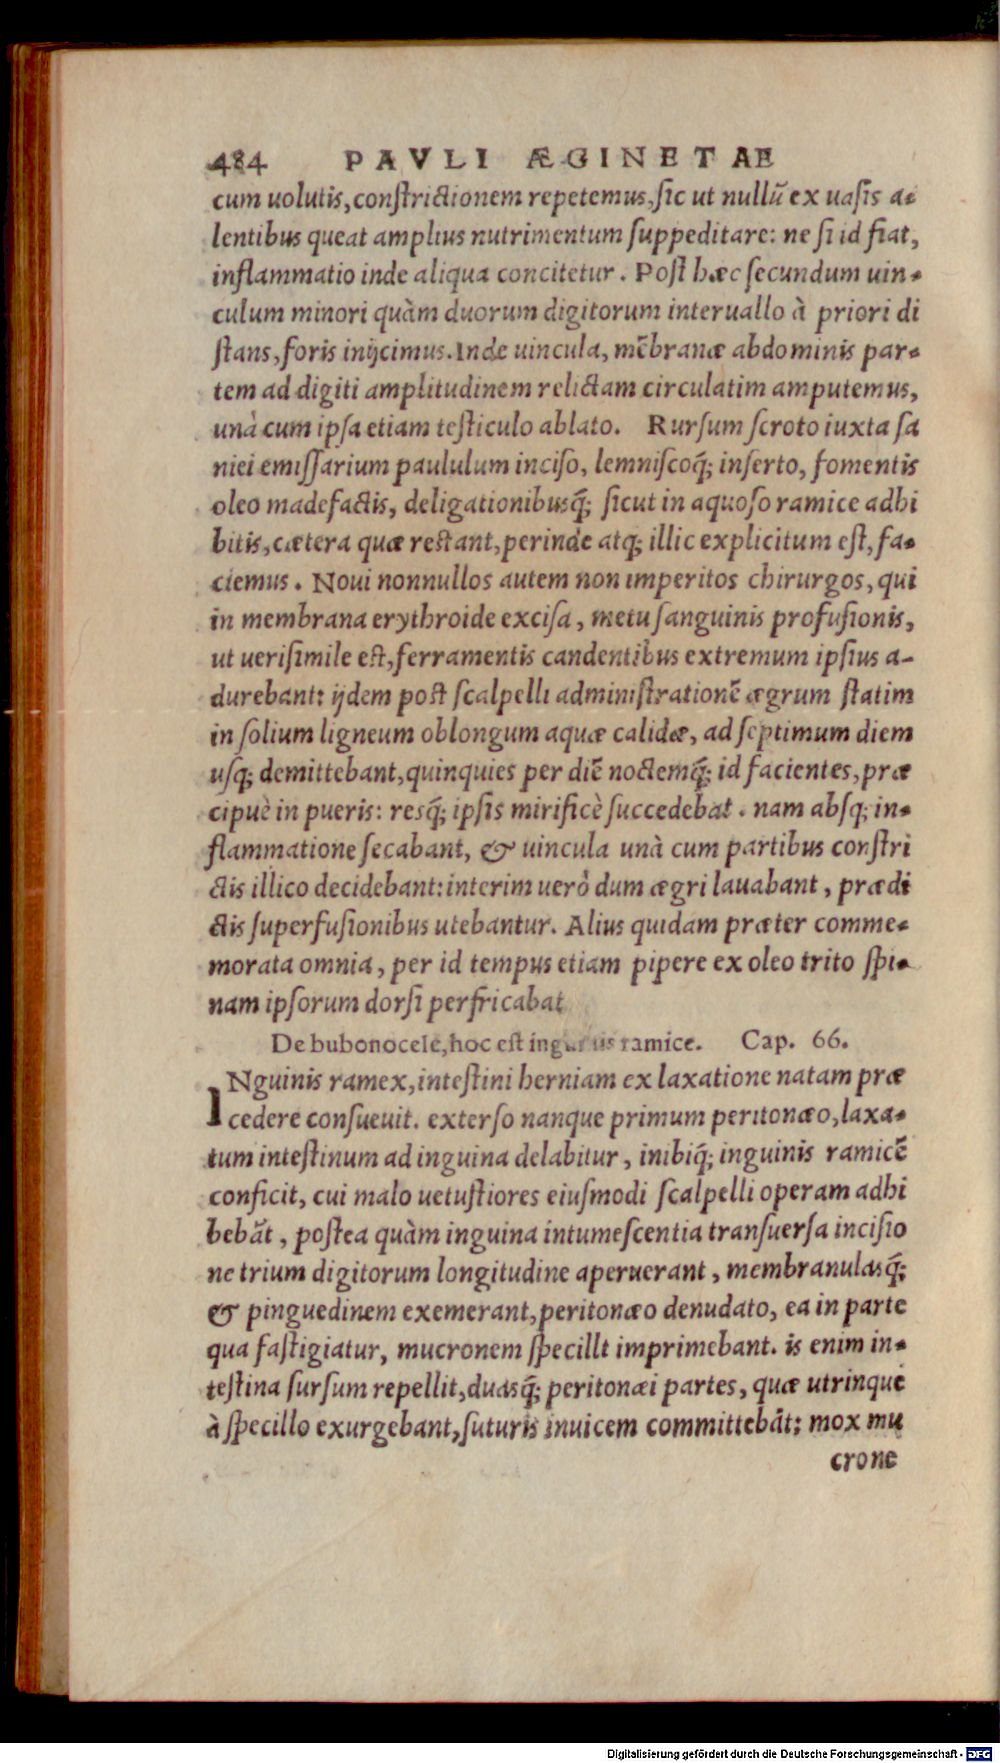 484 PAVLI ÆGINETAE
cum uolutis, constrictionem repetemus, sic ut nullũ ex uasis a-
lentibus queat amplius nutrimentum suppeditare: ne si id fiat,
inflammatio inde aliqua concitetur. Post hæc secundum uin-
culum minori quàm duorum digitorum interuallo à priori di
stans, foris inijcimus. Inde uincula, mẽbranæ abdominis par-
tem ad digiti amplitudinem relictam circulatim amputemus,
unà cum ipsa etiam testiculo ablato. Rursum scroto iuxta sa
niei emissarium paululum inciso, lemniscoq́; inserto, fomentis
oleo madefactis, deligationibusq́; sicut in aquoso ramice adhi
bitis, cætera quæ restant, perinde atq; illic explicitum est, fa-
ciemus. Noui nonnullos autem non imperitos chirurgos, qui
in membrana erythroide excisa, metu sanguinis profusionis,
ut uerisimile est, ferramentis candentibus extremum ipsius a-
durebant: ijdem post scalpelli administrationẽ ægrum statim
in solium ligneum oblongum aquæ calidæ, ad septimum diem
usq; demittebant, quinquies per diẽ noctemq́; id facientes, præ
cipuè in pueris: resq́; ipsis mirificè succedebat. nam absq; in-
flammatione secabant, & uincula unà cum partibus constri
ctis illico decidebant: interim uerò dum ægri lauabant, prædi
ctis superfusionibus utebantur. Alius quidam præter comme-
morata omnia, per id tempus etiam pipere ex oleo trito spi-
nam ipsorum dorsi perfricabat
De bubonocele, hoc est inguinis ramice. Cap. 66.
INguinis ramex, intestini herniam ex laxatione natam præ
cedere consueuit. exterso nanque primum peritonæo, laxa-
tum intestinum ad inguina delabitur, inibiq́; inguinis ramicẽ
conficit, cui malo uetustiores eiusmodi scalpelli operam adhi
bebãt, postea quàm inguina intumescentia transuersa incisio
ne trium digitorum longitudine aperuerant, membranulasq́;
& pinguedinem exemerant, peritonæo denudato, ea in parte
qua fastigiatur, mucronem specilli imprimebant. is enim in-
testina sursum repellit, duasq́; peritonæi partes, quæ utrinque
à specillo exurgebant, suturis inuicem committebãt: mox mu
crone
Digitalisierung gefördert durch die Deutsche Forschungsgemeinschaft - DFG